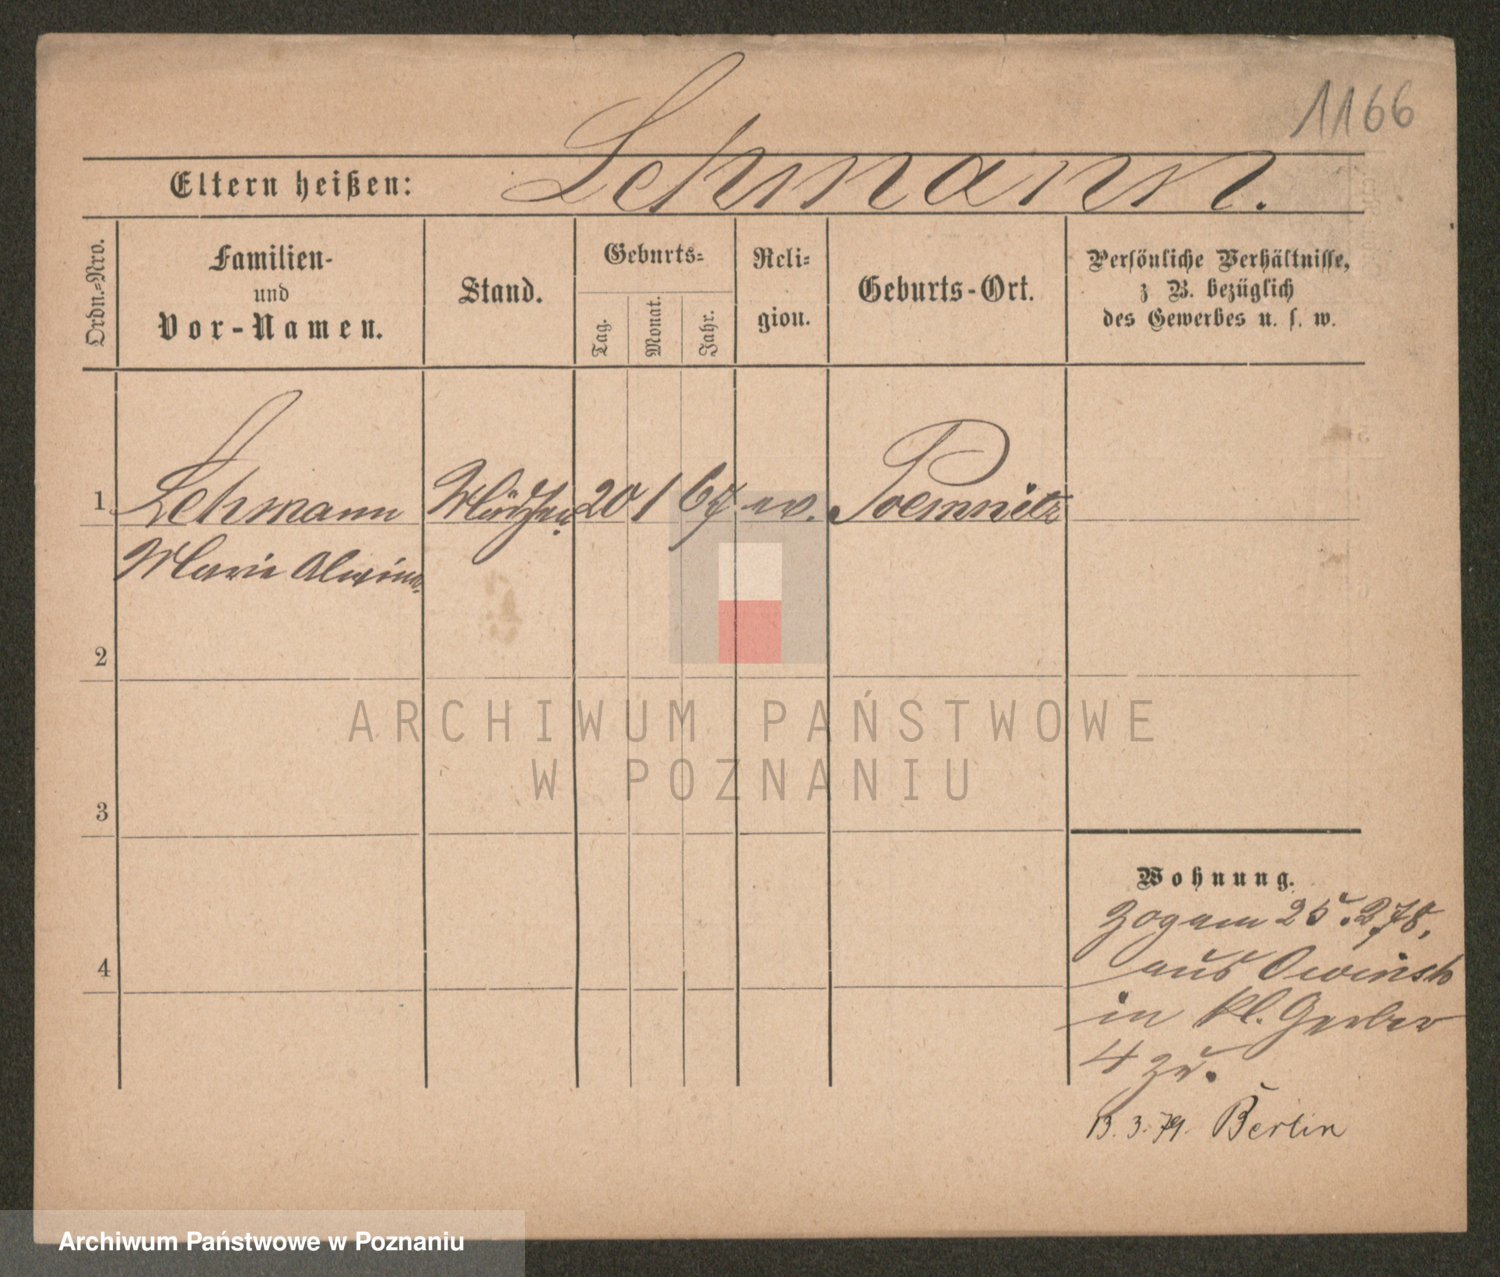 1166
Eltern heißen: Lehmann.
Ordn.=Nro.
Familien-
und
Vor-Namen.
Stand.
Geburts=
Tag.
Monat.
Jahr.
Reli=
gion.
Geburts-Ort.
Persönliche Verhältnisse,
z B. bezüglich
des Gewerbes u. s. w.
1 Lehmann Mädchen 20 1 64 ev.
Marie Alwine
2
ARCHIWUM PAŃSTWOWE
W POZNANIU
3
Wohnung.
25. 2 78.
aus Owinsk
4
in kl. Gerber
4 zu.
13. 3. 79. Berlin
Archiwum Państwowe w Poznaniu